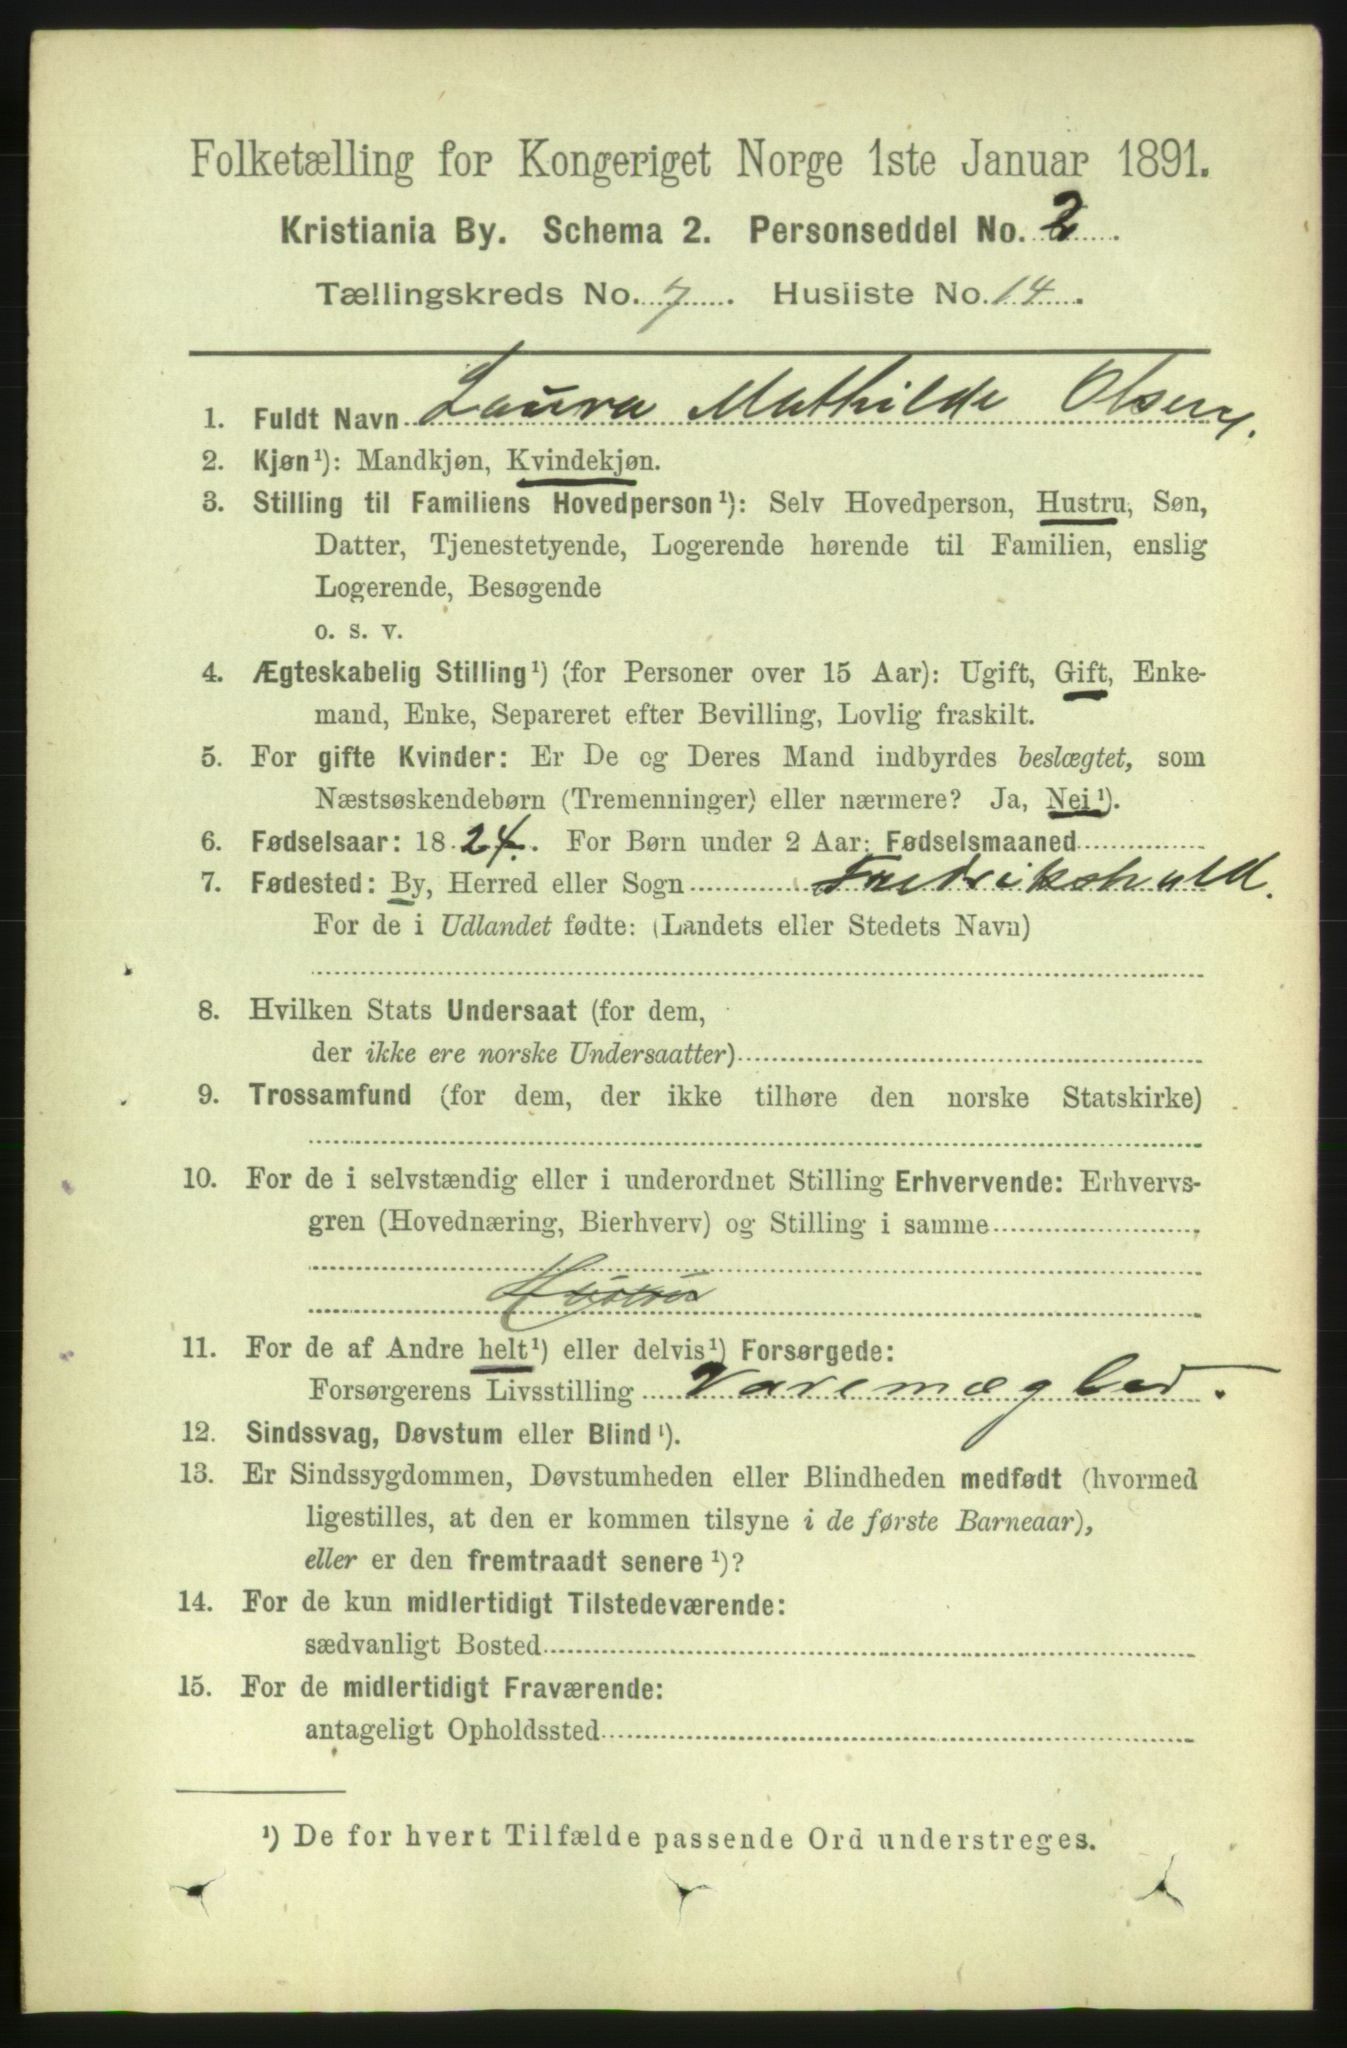 Folketælling for Kongeriget Norge 1ste Januar 1891.
Kristiania By. Schema 2. Personseddel No. 2.
Tællingskreds No. 7. Husliste No. 14.
1. Fuldt Navn Laura Mathilde Olsen.
2. Kjøn¹): Mandkjøn, Kvindekjøn.
3. Stilling til Familiens Hovedperson¹): Selv Hovedperson, Hustru, Søn,
Datter, Tjenestetyende, Logerende hørende til Familien, enslig
Logerende, Besøgende
o. s. v.
4. Ægteskabelig Stilling¹) (for Personer over 15 Aar): Ugift, Gift, Enke-
mand, Enke, Separeret efter Bevilling, Lovlig fraskilt.
5. For gifte Kvinder: Er De og Deres Mand indbyrdes beslægtet, som
Næstsøskendebørn (Tremenninger) eller nærmere? Ja, Nei¹).
6. Fødselsaar: 1824. For Børn under 2 Aar: Fødselsmaaned
7. Fødested: By, Herred eller Sogn Fredrikshald.
For de i Udlandet fødte: (Landets eller Stedets Navn)
8. Hvilken Stats Undersaat (for dem,
der ikke ere norske Undersaatter)
9. Trossamfund (for dem, der ikke tilhøre den norske Statskirke)
10. For de i selvstændig eller i underordnet Stilling Erhvervende: Erhvervs-
gren (Hovednæring, Bierhverv) og Stilling i samme
Hustru
11. For de af Andre helt¹) eller delvis¹) Forsørgede:
Forsørgerens Livsstilling Varemægler.
12. Sindssvag, Døvstum eller Blind¹).
13. Er Sindssygdommen, Døvstumheden eller Blindheden medfødt (hvormed
ligestilles, at den er kommen tilsyne i de første Barneaar),
eller er den fremtraadt senere¹)?
14. For de kun midlertidigt Tilstedeværende:
sædvanligt Bosted
15. For de midlertidigt Fraværende:
antageligt Opholdssted
¹) De for hvert Tilfælde passende Ord understreges.